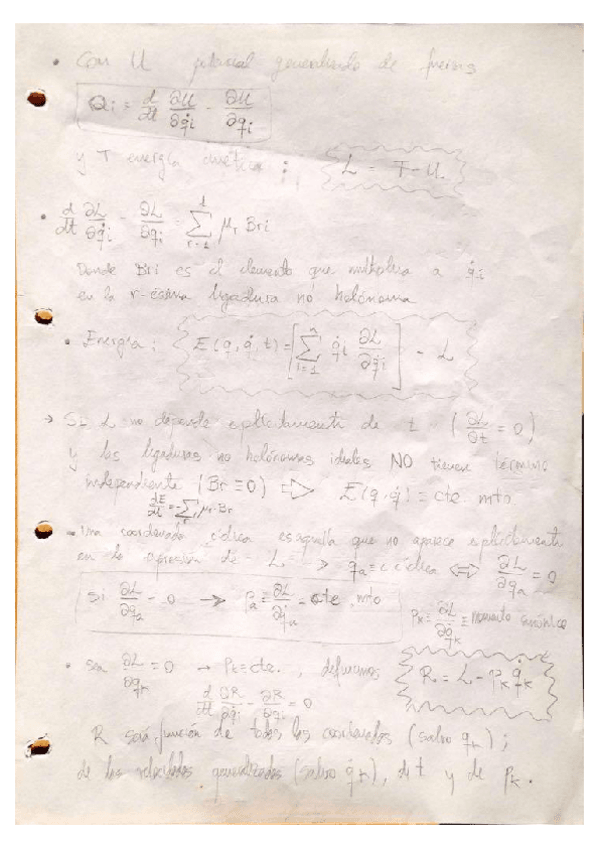 • Con U potencial generalizado de fuerzas
Qi = d/dt ∂U/∂q̇i - ∂U/∂qi
y T energía cinética : L = T - U.
• d/dt ∂L/∂q̇i - ∂L/∂qi = Σ r=1 l μr Bri
Donde Bri es el elemento que multiplica a q̇i
en la r-ésima ligadura no holónoma
• Energía : E(q, q̇, t) = [Σ i=1 n q̇i ∂L/∂q̇i] - L
→ Si L no depende explícitamente de t (∂L/∂t = 0)
y las ligaduras no holónomas ideales NO tienen término
independiente (Br ≡ 0) ⇨ E(q, q̇) = cte. mto
dE/dt = -Σr μr Br
• Una coordenada cíclica es aquella que no aparece explícitamente
en la expresión de L → qa = cíclica ⇔ ∂L/∂qa = 0
Si ∂L/∂qa = 0 → Pa = ∂L/∂q̇a = cte. mto
Pk = ∂L/∂q̇k ≡ momento canónico
• sea ∂L/∂qk = 0 → Pk = cte. , definimos R = L - Pk q̇k
d/dt ∂R/∂q̇i - ∂R/∂qi = 0
R será función de todas las coordenadas (salvo qk) ;
de las velocidades generalizadas (salvo q̇k), de t y de Pk.